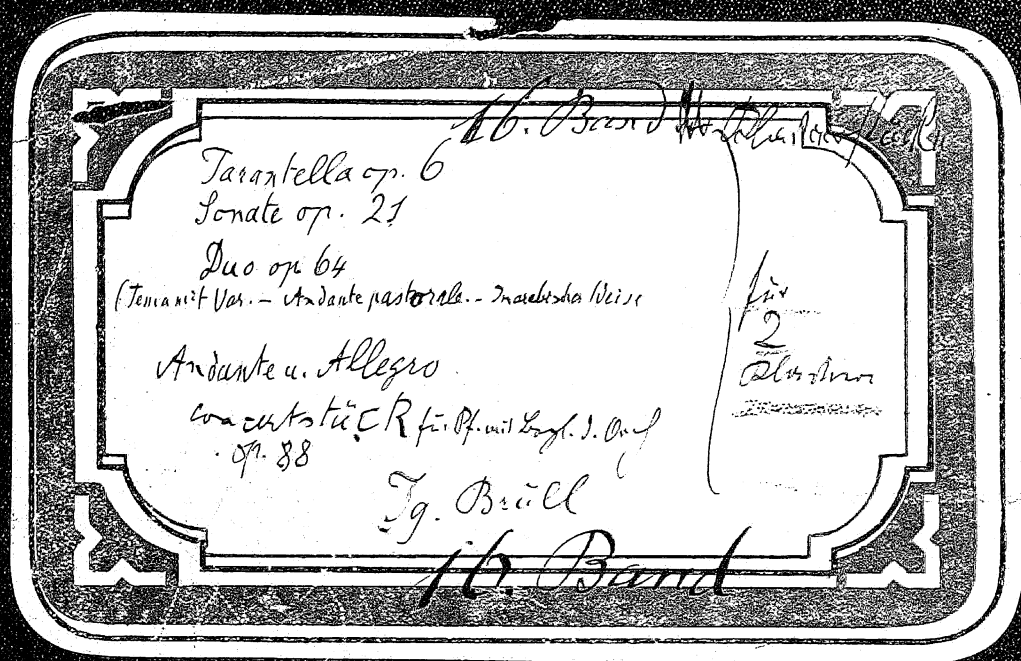 16. Band
Tarantella op. 6
Sonate op. 21
Duo op 64
(Tema mit Var. – Andante pastorale. – In arabischer Weise
Andante u. Allegro
Concertstück für Pf. mit Begl. d. Orch
op. 88
für
2
Claviere
Ig. Brüll
16. Band